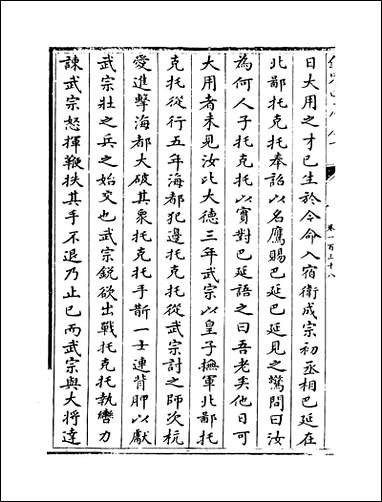 曰大用之才已生於今命入宿衛成宗初丞相巴延在
北鄙托克托奉詔以名鷹賜巴延巴延見之驚問曰汝
為何人子托克托以實對巴延語之曰吾老矣他日可
大用者未見汝比大德三年武宗以皇子撫軍北鄙托
克托從行五年海都犯邊托克托從武宗討之師次杭
愛進擊海都大破其衆托克托手斮一士連背胛以獻
武宗壯之兵之始交也武宗銳欲出戰托克托執轡力
諌武宗怒揮鞭抶其手不退乃止已而武宗與大將達
卷一百三十八